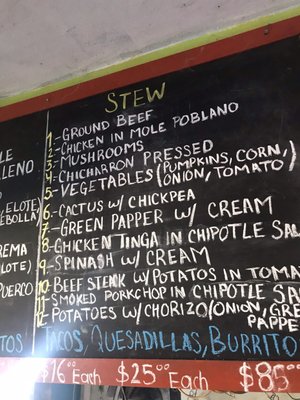 STEW
1-GROUND BEEF
2-CHICKEN IN MOLE POBLANO
3-MUSHROOMS
4-CHICHARRON PRESSED
5-VEGETABLES (PUMPKINS, CORN,
(ONION, TOMATO)
6-CACTUS w/ CHICKPEA
7-GREEN PAPPER w/ CREAM
8-CHICKEN TINGA IN CHIPOTLE SAL
9-SPINASH w/ CREAM
10-BEEF STEAK w/ POTATOS IN TOMA
11-SMOKED PORKCHOP IN CHIPOTLE SA
12-POTATOES w/ CHORIZO (ONION, GRE
PAPPE
TACOS, QUESADILLAS, BURRITO
LE
LLENO
, ELOTE
EBOLLA)
REMA
LOTE)
PUERCO
TOS
$16.00 Each $25.00 Each $85.00